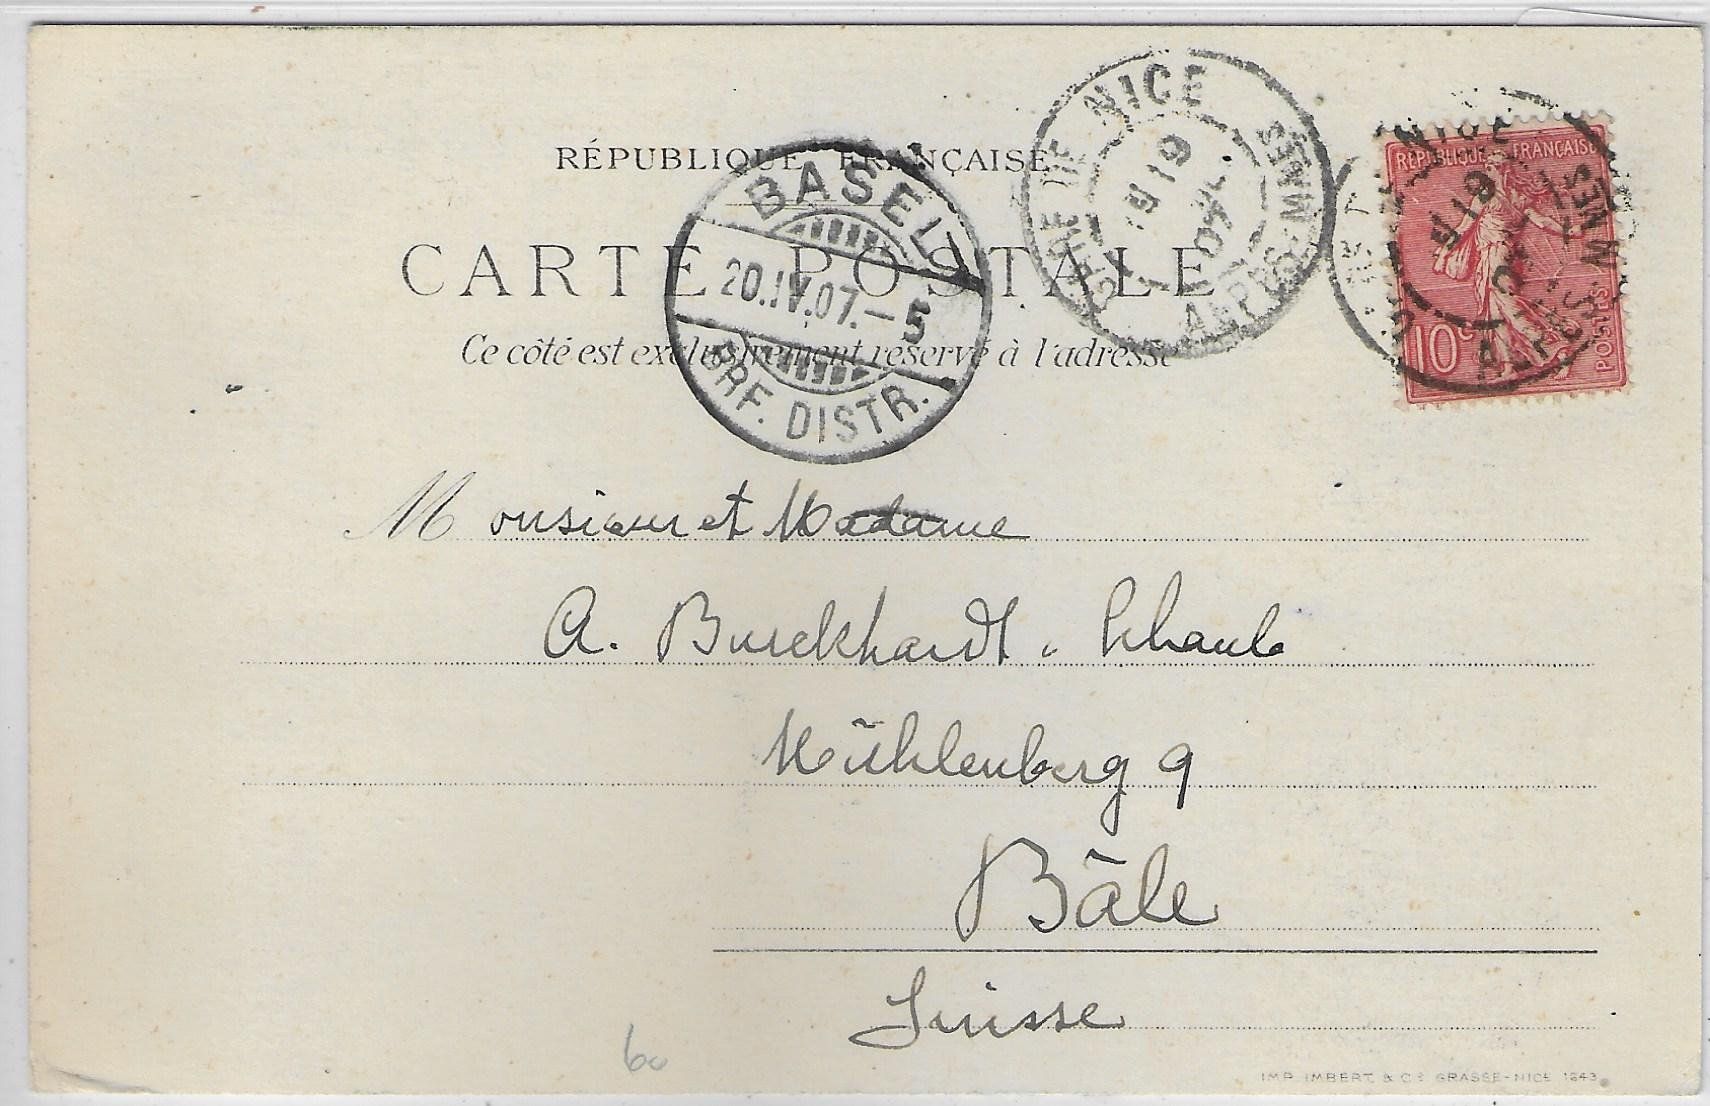 RÉPUBLIQUE FRANÇAISE
CARTE POSTALE
Ce côté est exclusivement réservé à l'adresse
BASEL
20.IV.07.–5
BRF. DISTR.
GARE DE NICE
19
07
ALPES-MMES
RÉPUBLIQUE FRANÇAISE
10c
POSTES
NICE
19
ALPES MMES
Monsieur et Madame
A. Burckhardt - Schaub
Mühlenberg 9
Bâle
Suisse
60
IMP. IMBERT & CIE GRASSE-NICE 1243